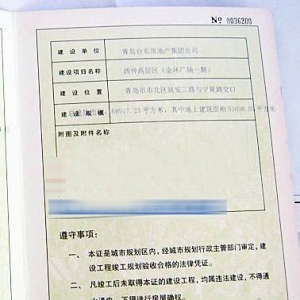 № 0036200
建设单位 青岛台东房地产集团公司
建设项目名称 西传高层区（金环广场一期）
建设位置 青岛市市北区延安三路与宁夏路交口
建设规模 7.23平方米，其中地上建筑面积 平方米
附图及附件名称
遵守事项：
一、本证是城市规划区内，经城市规划行政主管部门审定，建
设工程竣工规划验收合格的法律凭证。
二、凡竣工后未取得本证的建设工程，均属违法建设，不得通
不得进行房屋确权